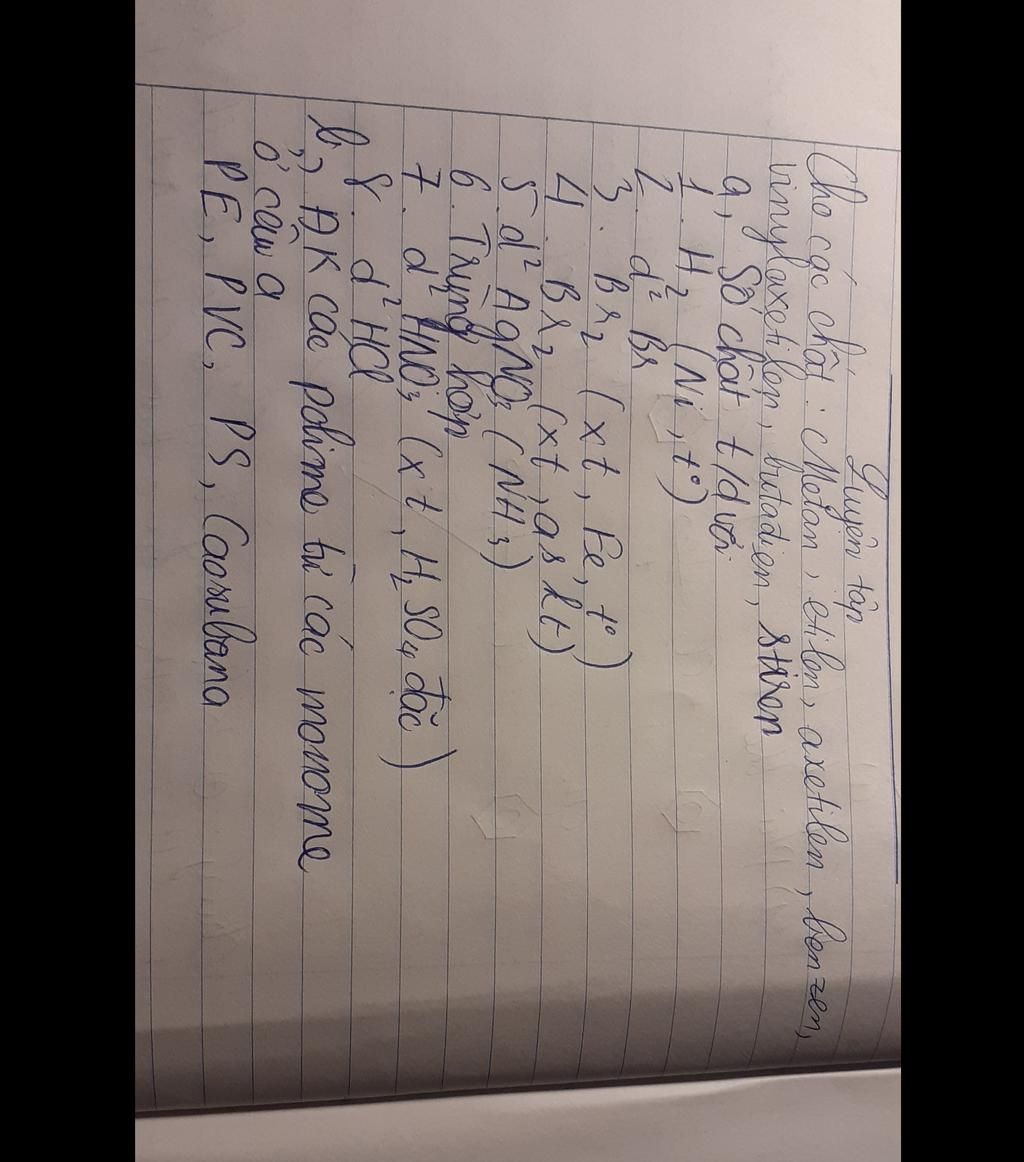 Luyện tập
Cho các chất: Metan, etilen, axetilen, benzen,
vinylaxetilen, butadien, stiren
a, Số chất t/d với
1. H2 (Ni, t°)
2. d² Br
3. Br2 (xt, Fe, t°)
4. Br2 (xt, as kt)
5. d² AgNO3 (NH3)
6. Trùng hợp
7. d² HNO3 (xt, H2SO4 đặc)
8. d² HCl
b, ĐK các polime từ các monome
ở câu a
PE, PVC, PS, Caosubana